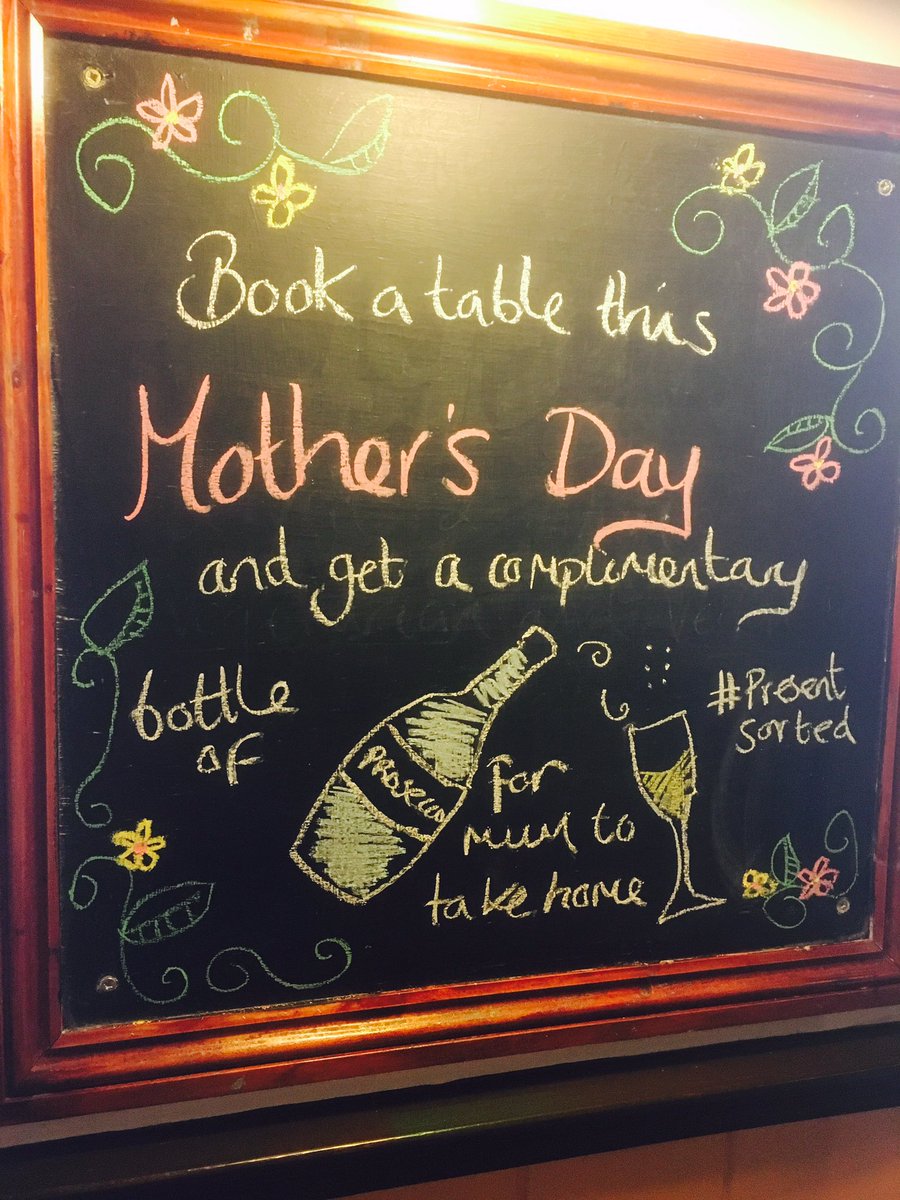 Book a table this
Mother's Day
and get a complimentary
bottle
of
Prosecco
for
mum to
take home
#Present
sorted